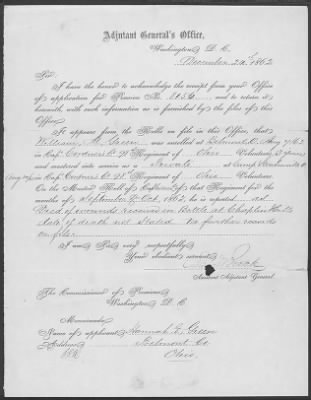 Adjutant General's Office,
Washington D. C.
December 20th 1862
Sir:
I have the honor to acknowledge the receipt from your Office
of application for Pension No. and to return it
herewith, with such information as is furnished by the files of this
Office.
It appears from the Rolls on file in this Office, that
William Green was enrolled at Belmont O. Aug 7/62
in Capt. Co. Regiment of Ohio Volunteers, 3 years
and mustered into service as a Private at Camp
in Capt. Co. Regiment of Ohio Volunteers.
On the Muster Roll of Co. of that Regiment for the
months of September & Oct 1862, he is reported
Died of wounds received in Battle at Chaplin Hills
date of death not stated No further records
on file.
I am Sir, very respectfully,
Your obedient servant,
Assistant Adjutant General.
The Commissioner of Pensions
Washington D. C.
Memoranda:
Name of applicant Hannah E. Green
Address Belmont Co
Ohio.